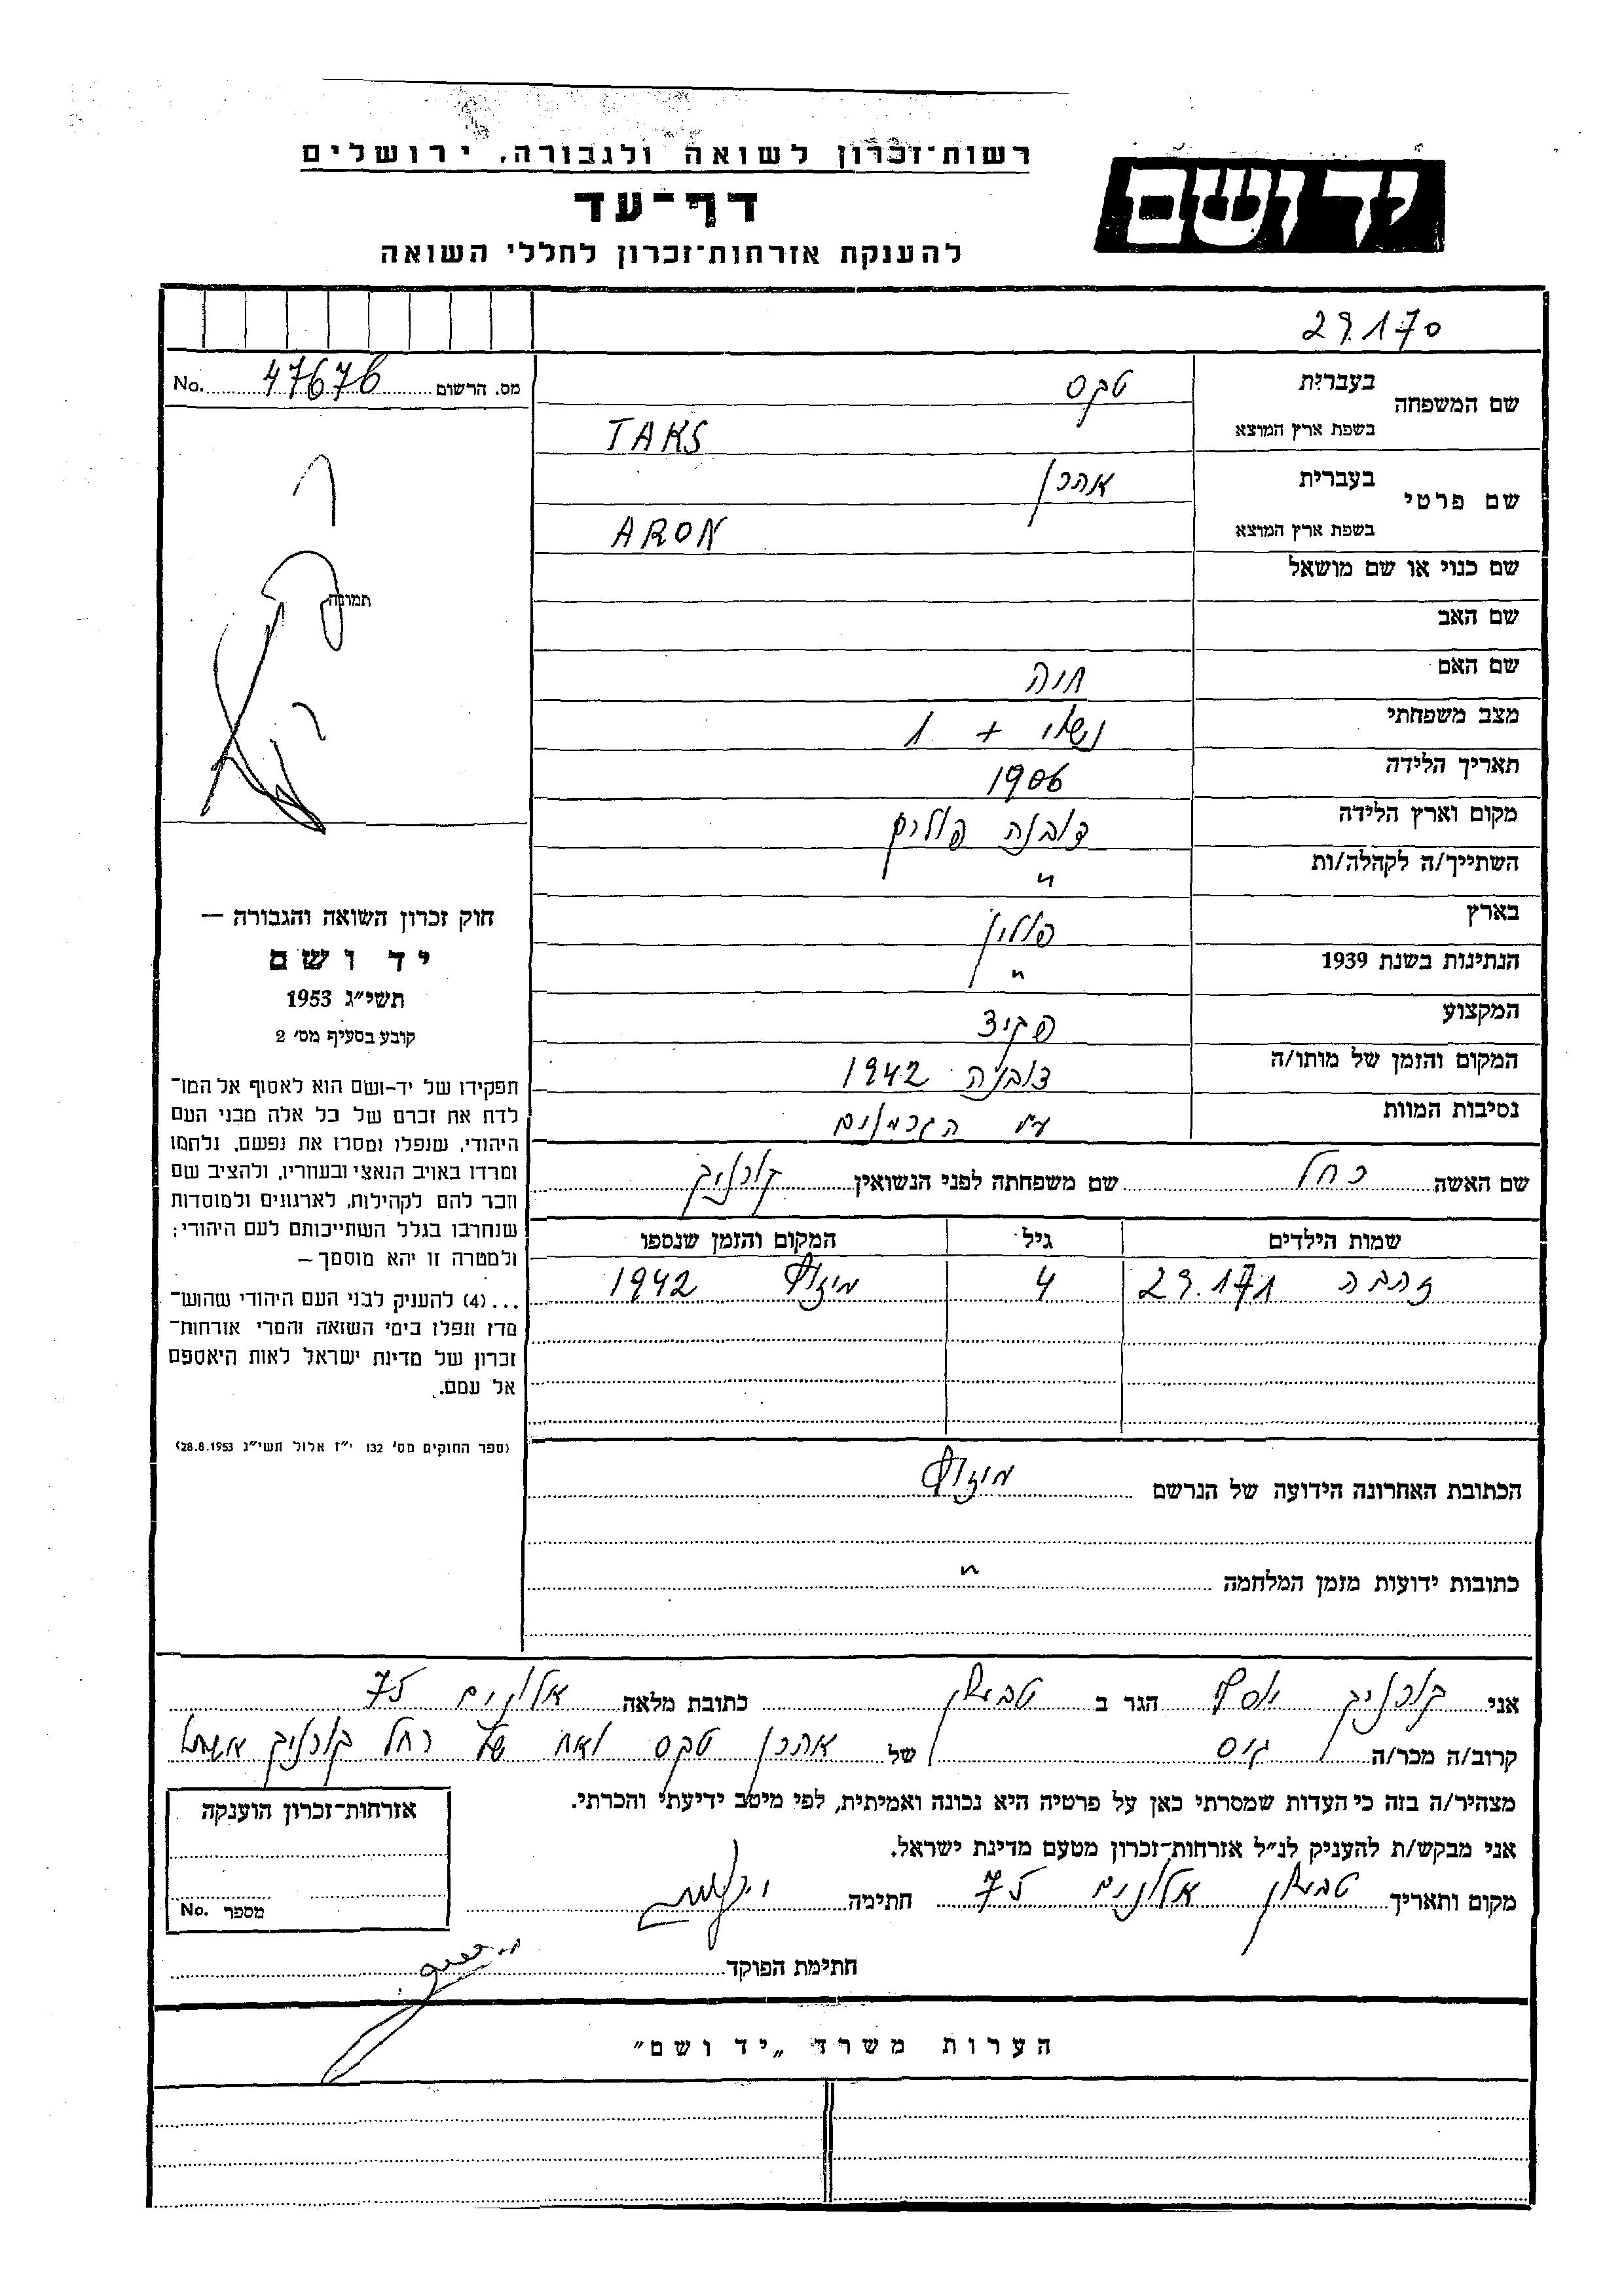 רשות־זכרון לשואה ולגבורה, ירושלים
יד ושם
דף־עד
להענקת אזרחות־זכרון לחללי השואה
29.170
מס. הרשום 47676 No.
שם המשפחה בעברית טקס
בשפת ארץ המוצא TAKS
שם פרטי בעברית אהרן
בשפת ארץ המוצא ARON
שם כנוי או שם מושאל
תמונה
שם האב
שם האם חוה
מצב משפחתי נשוי + 1
תאריך הלידה 1906
מקום וארץ הלידה דובנה פולין
השתייך/ה לקהלה/ות "
בארץ פולין
הנתינות בשנת 1939 "
המקצוע פקיד
המקום והזמן של מותו/ה דובנה 1942
נסיבות המוות ע"י הגרמנים
שם האשה רחל שם משפחתה לפני הנשואין
שמות הילדים גיל המקום והזמן שנספו
זהבה 29.171 4 1942
הכתובת האחרונה הידועה של הנרשם
כתובות ידועות מזמן המלחמה "
חוק זכרון השואה והגבורה —
יד ושם
תשי״ג 1953
קובע בסעיף מס׳ 2
תפקידו של יד-ושם הוא לאסוף אל המו־
לדת את זכרם של כל אלה מבני העם
היהודי, שנפלו ומסרו את נפשם, נלחמו
ומרדו באויב הנאצי ובעוזריו, ולהציב שם
וזכר להם לקהילות, לארגונים ולמוסדות
שנחרבו בגלל השתייכותם לעם היהודי;
ולמטרה זו יהא מוסמך —
...(4) להענק לבני העם היהודי שהוש־
מדו ונפלו בימי השואה והמרי אזרחות־
זכרון של מדינת ישראל לאות היאספם
אל עמם.
(ספר החוקים מס׳ 132 י״ז אלול תשי״ג 28.8.1953)
אני יוסף הגר ב טבעון כתובת מלאה אלונים 75
קרוב/ה מכר/ה גיס של אהרן טקס ואח של רחל אשתו
מצהיר/ה בזה כי העדות שמסרתי כאן על פרטיה היא נכונה ואמיתית, לפי מיטב ידיעתי והכרתי.
אני מבקש/ת להעניק לנ״ל אזרחות־זכרון מטעם מדינת ישראל.
מקום ותאריך טבעון אלונים 75 חתימה
חתימת הפוקד
אזרחות־זכרון הוענקה
מספר No.
הערות משרד „יד ושם"